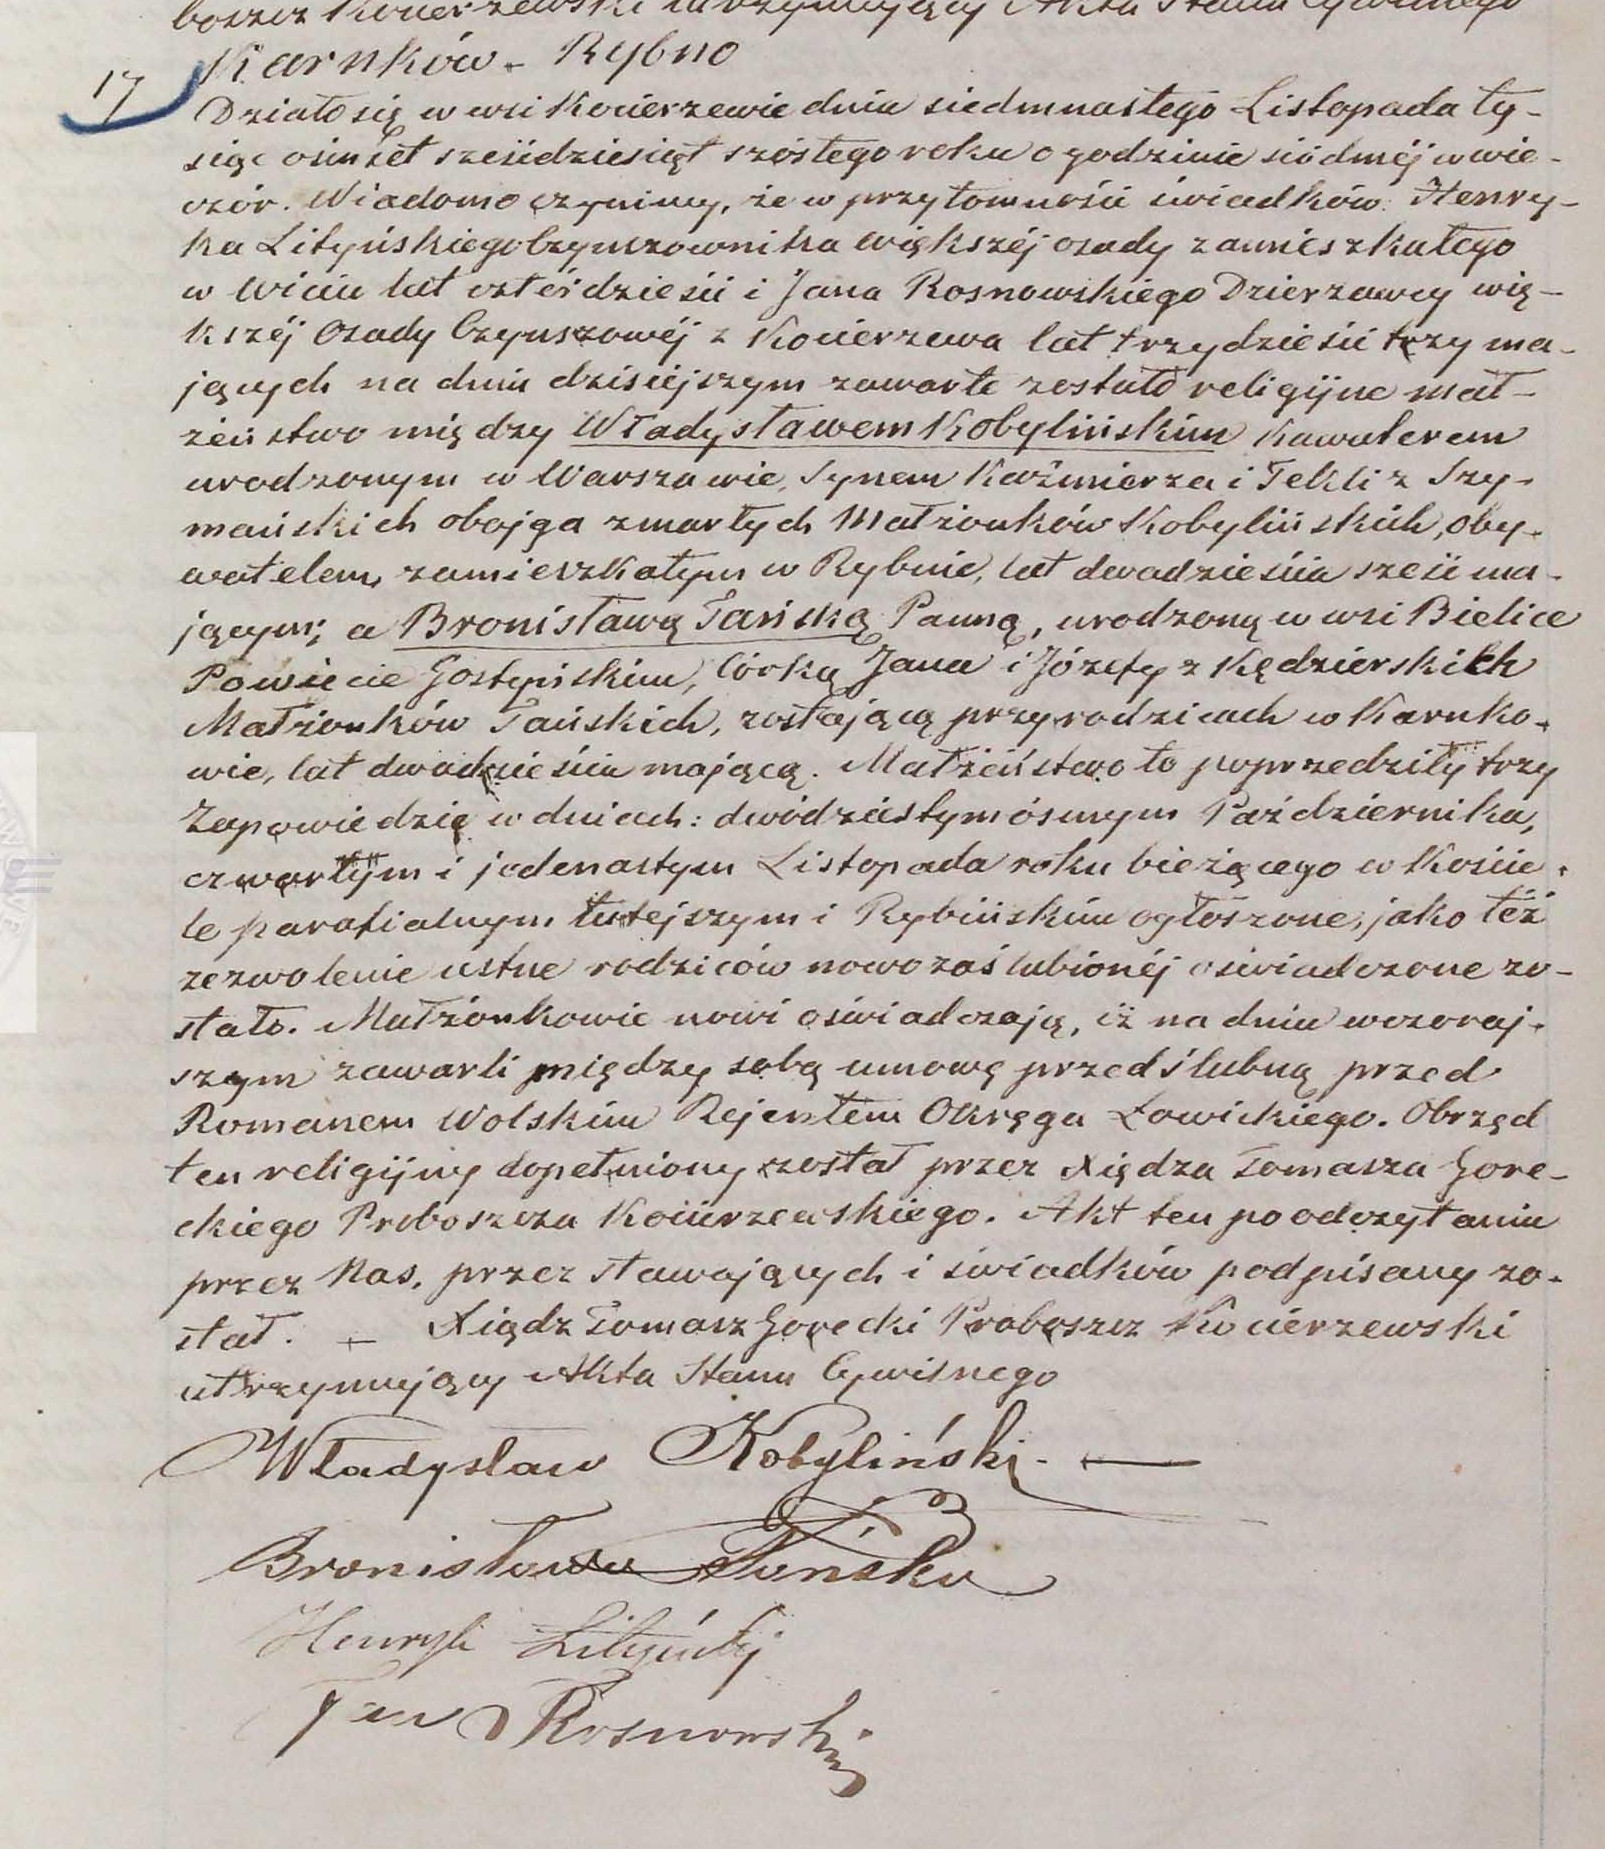 boszcz Kocierzewski utrzymujący Akta Stanu Cywilnego
Karnków - Rybno
17
Działo się w wsi Kocierzewie dnia siedmnastego Listopada ty-
siąc ośmset sześćdziesiąt szóstego roku o godzinie siódméj w wie-
czór. Wiadomo czynimy, że w przytomności świadków: Henry-
ka Lityńskiego Czynszownika większéj osady zamieszkałego
w Wiciu lat czterdzieści i Jana Rosnowskiego Dzierzawcy wię-
kszéj Osady Czynszowéj z Kocierzewa lat trzydzieści trzy ma-
jących na dniu dzisiejszym zawarte zostało religijne mał-
żeństwo między Władysławem Kobylińskim Kawalerem
urodzonym w Warszawie, Synem Kaźmierza i Tekli z Szy-
mańskich obojga zmarłych Małżonków Kobylińskich, oby-
watelem, zamieszkałym w Rybnie, lat dwadzieścia sześć ma-
jącym; a Bronisławą Tańską Panną, urodzoną w wsi Bielice
Powiecie Gostyńskim, Córką Jana i Józefy z Kędzierskich
Małżonków Tańskich, zostającą przy rodzicach w Karnko-
wie, lat dwadzieścia mającą. Małżeństwo to poprzedziły trzy
Zapowiedzie w dniach: dwódziestym ósmym Października,
czwartym i jedenastym Listopada roku bieżącego w Koście-
le parafialnym tutejszym i Rybińskim ogłoszone, jako też
zezwolenie ustne rodziców nowozaślubionéj oświadczone zo-
stało. Małżonkowie nowi oświadczają, iż na dniu wczoraj-
szym zawarli między sobą umowę przedślubną przed
Romanem Wolskim Rejentem Okręgu Łowickiego. Obrzęd
ten religijny dopełniony został przez Xiędza Tomasza Gore-
ckiego Proboszcza Kocierzewskiego. Akt ten po odczytaniu
przez Nas, przez stawających i świadków podpisany zo-
stał. — Xiądz Tomasz Gorecki Proboszcz Kocierzewski
utrzymujący Akta Stanu Cywilnego
Władysław Kobyliński. —
Bronisława Tańska
Henryk Lityński
Jan Rosnowski